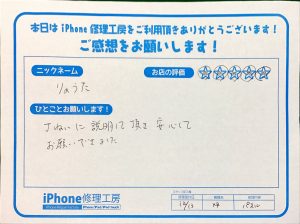 本日は iPhone 修理工房をご利用頂きありがとうございます！
ご感想をお願いします！
ニックネーム
お店の評価
りゅうた
ひとことお願いします！
丁ねいに説明して頂き安心して
お願いできました
iPhone修理工房